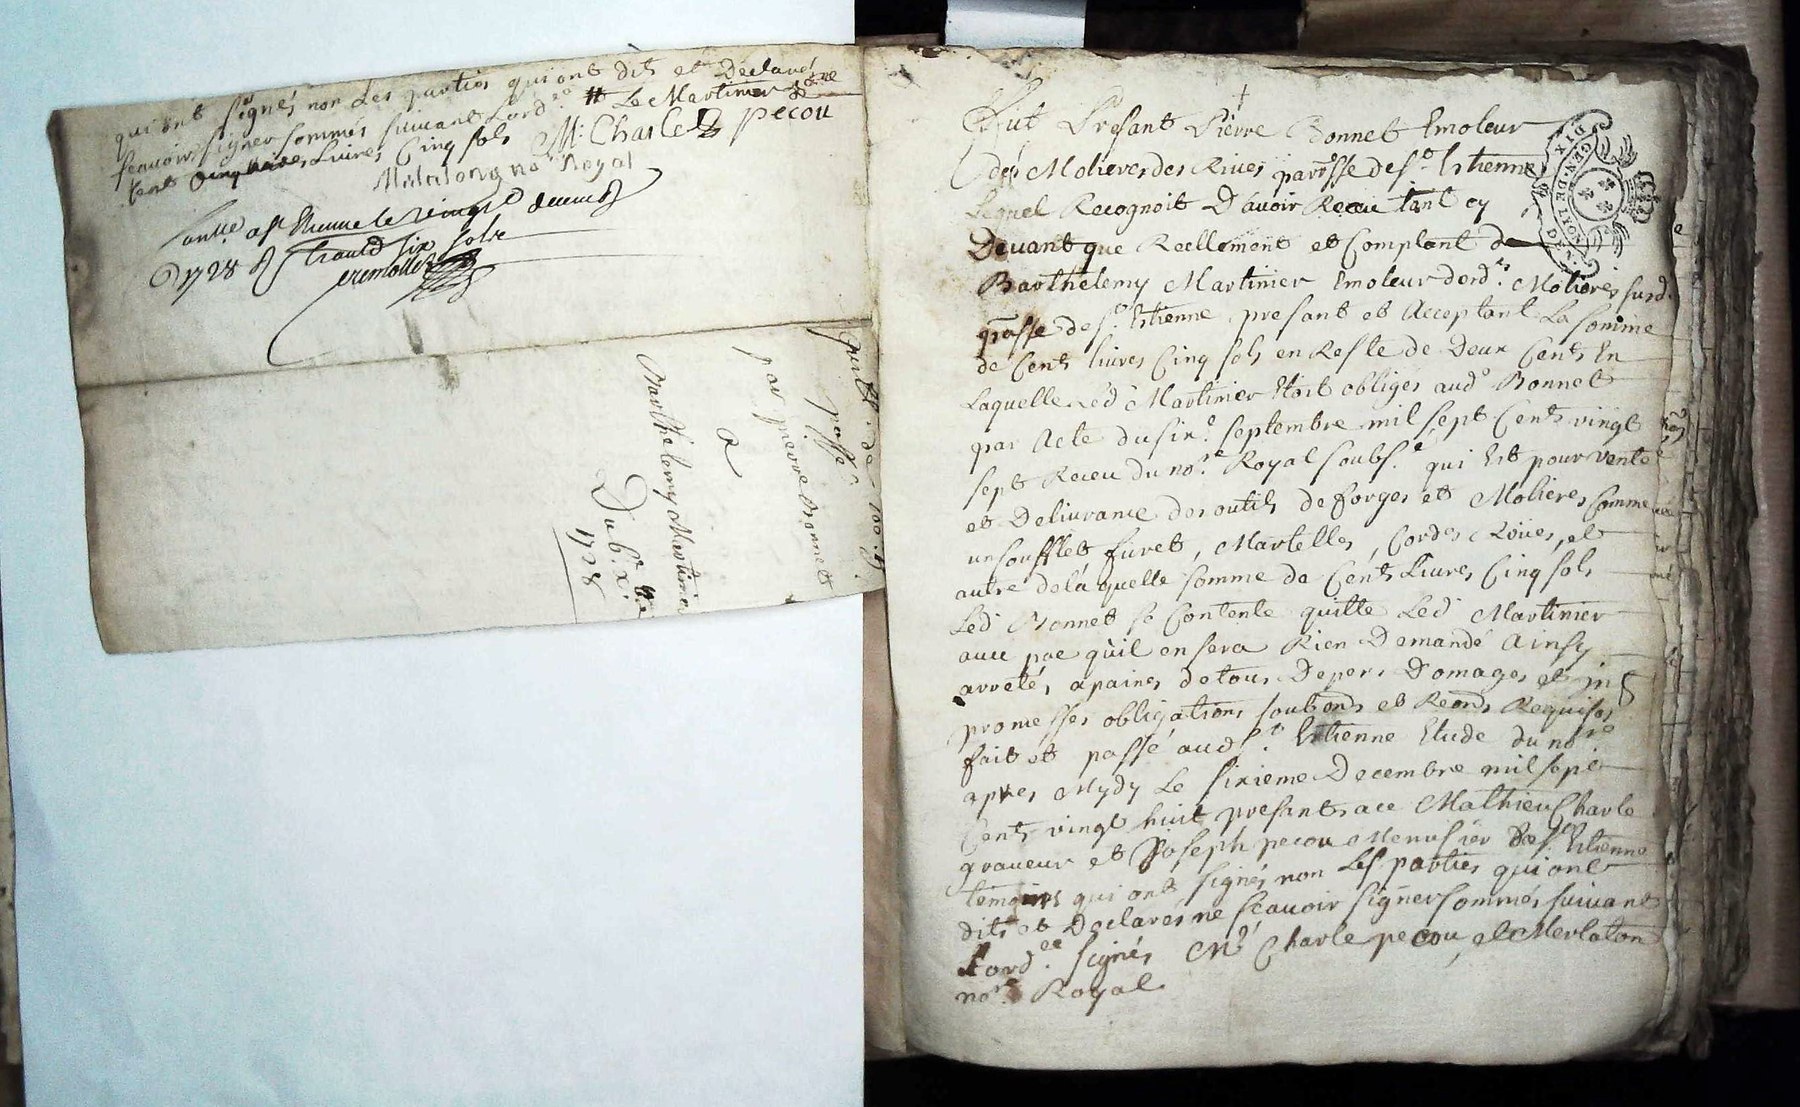 qui ont signés non les parties qui ont dit et Déclaré
scavoir signer sommés suivant Lord.ce # Le Martinier
cent Livres Cinq sols M: Charles pecou
no.re Royal
le vingt decemb
1728 six sols
quitt. de 100 : 5
passé
par pierre Bonnet
a
Barthelemy Martinier
Du 6.e X.bre
1728
Fut Présant Pierre Bonnet Emoleur
des Molieres des Rives paroisse de S.t Estienne
Lequel Recognoit D'avoir Receu tant cy
Devant que Reellement et Comptant de
Barthelemy Martinier Emoleur desd.s Molieres susd.
p̄asse de S.t Estienne presant et Acceptant La somme
de Cent livres Cinq sols en Reste de Deux Cents En
Laquelle Led Martinier Etoit obligés aud.o Bonnet
par Acte du six.e septembre mil sept Cent vingt
sept Receu du no.re Royal soubs.é qui Est pour vente
et Delivrance des outils de forges et Molieres Comme
un soufflet furet, Martelles, Cordes Roües, et
autre de laquelle somme de Cent Livres Cinq sols
Led Bonnet se Contente quitte Led Martinier
avec pae qu'il en sera Rien Demandé Ainsy
arretés apaines de tous Depens Domages et
promesses obligations soub et Requises
fait et passé aud S.t Estienne Etude du no.re
apres Mydy Le sixieme Decembre mil sept
Cent vingt huit presants ace Mathieu Charle
graveur et Joseph pecou Menusier De S.t Estienne
temoins qui ont signés non Les parties qui ont
dits et Declarés ne scavoir signer sommés suivant
Lord.ce signés M.e Charle pecou, et Merlaton
no.re Royal
GEN. DE
NORD